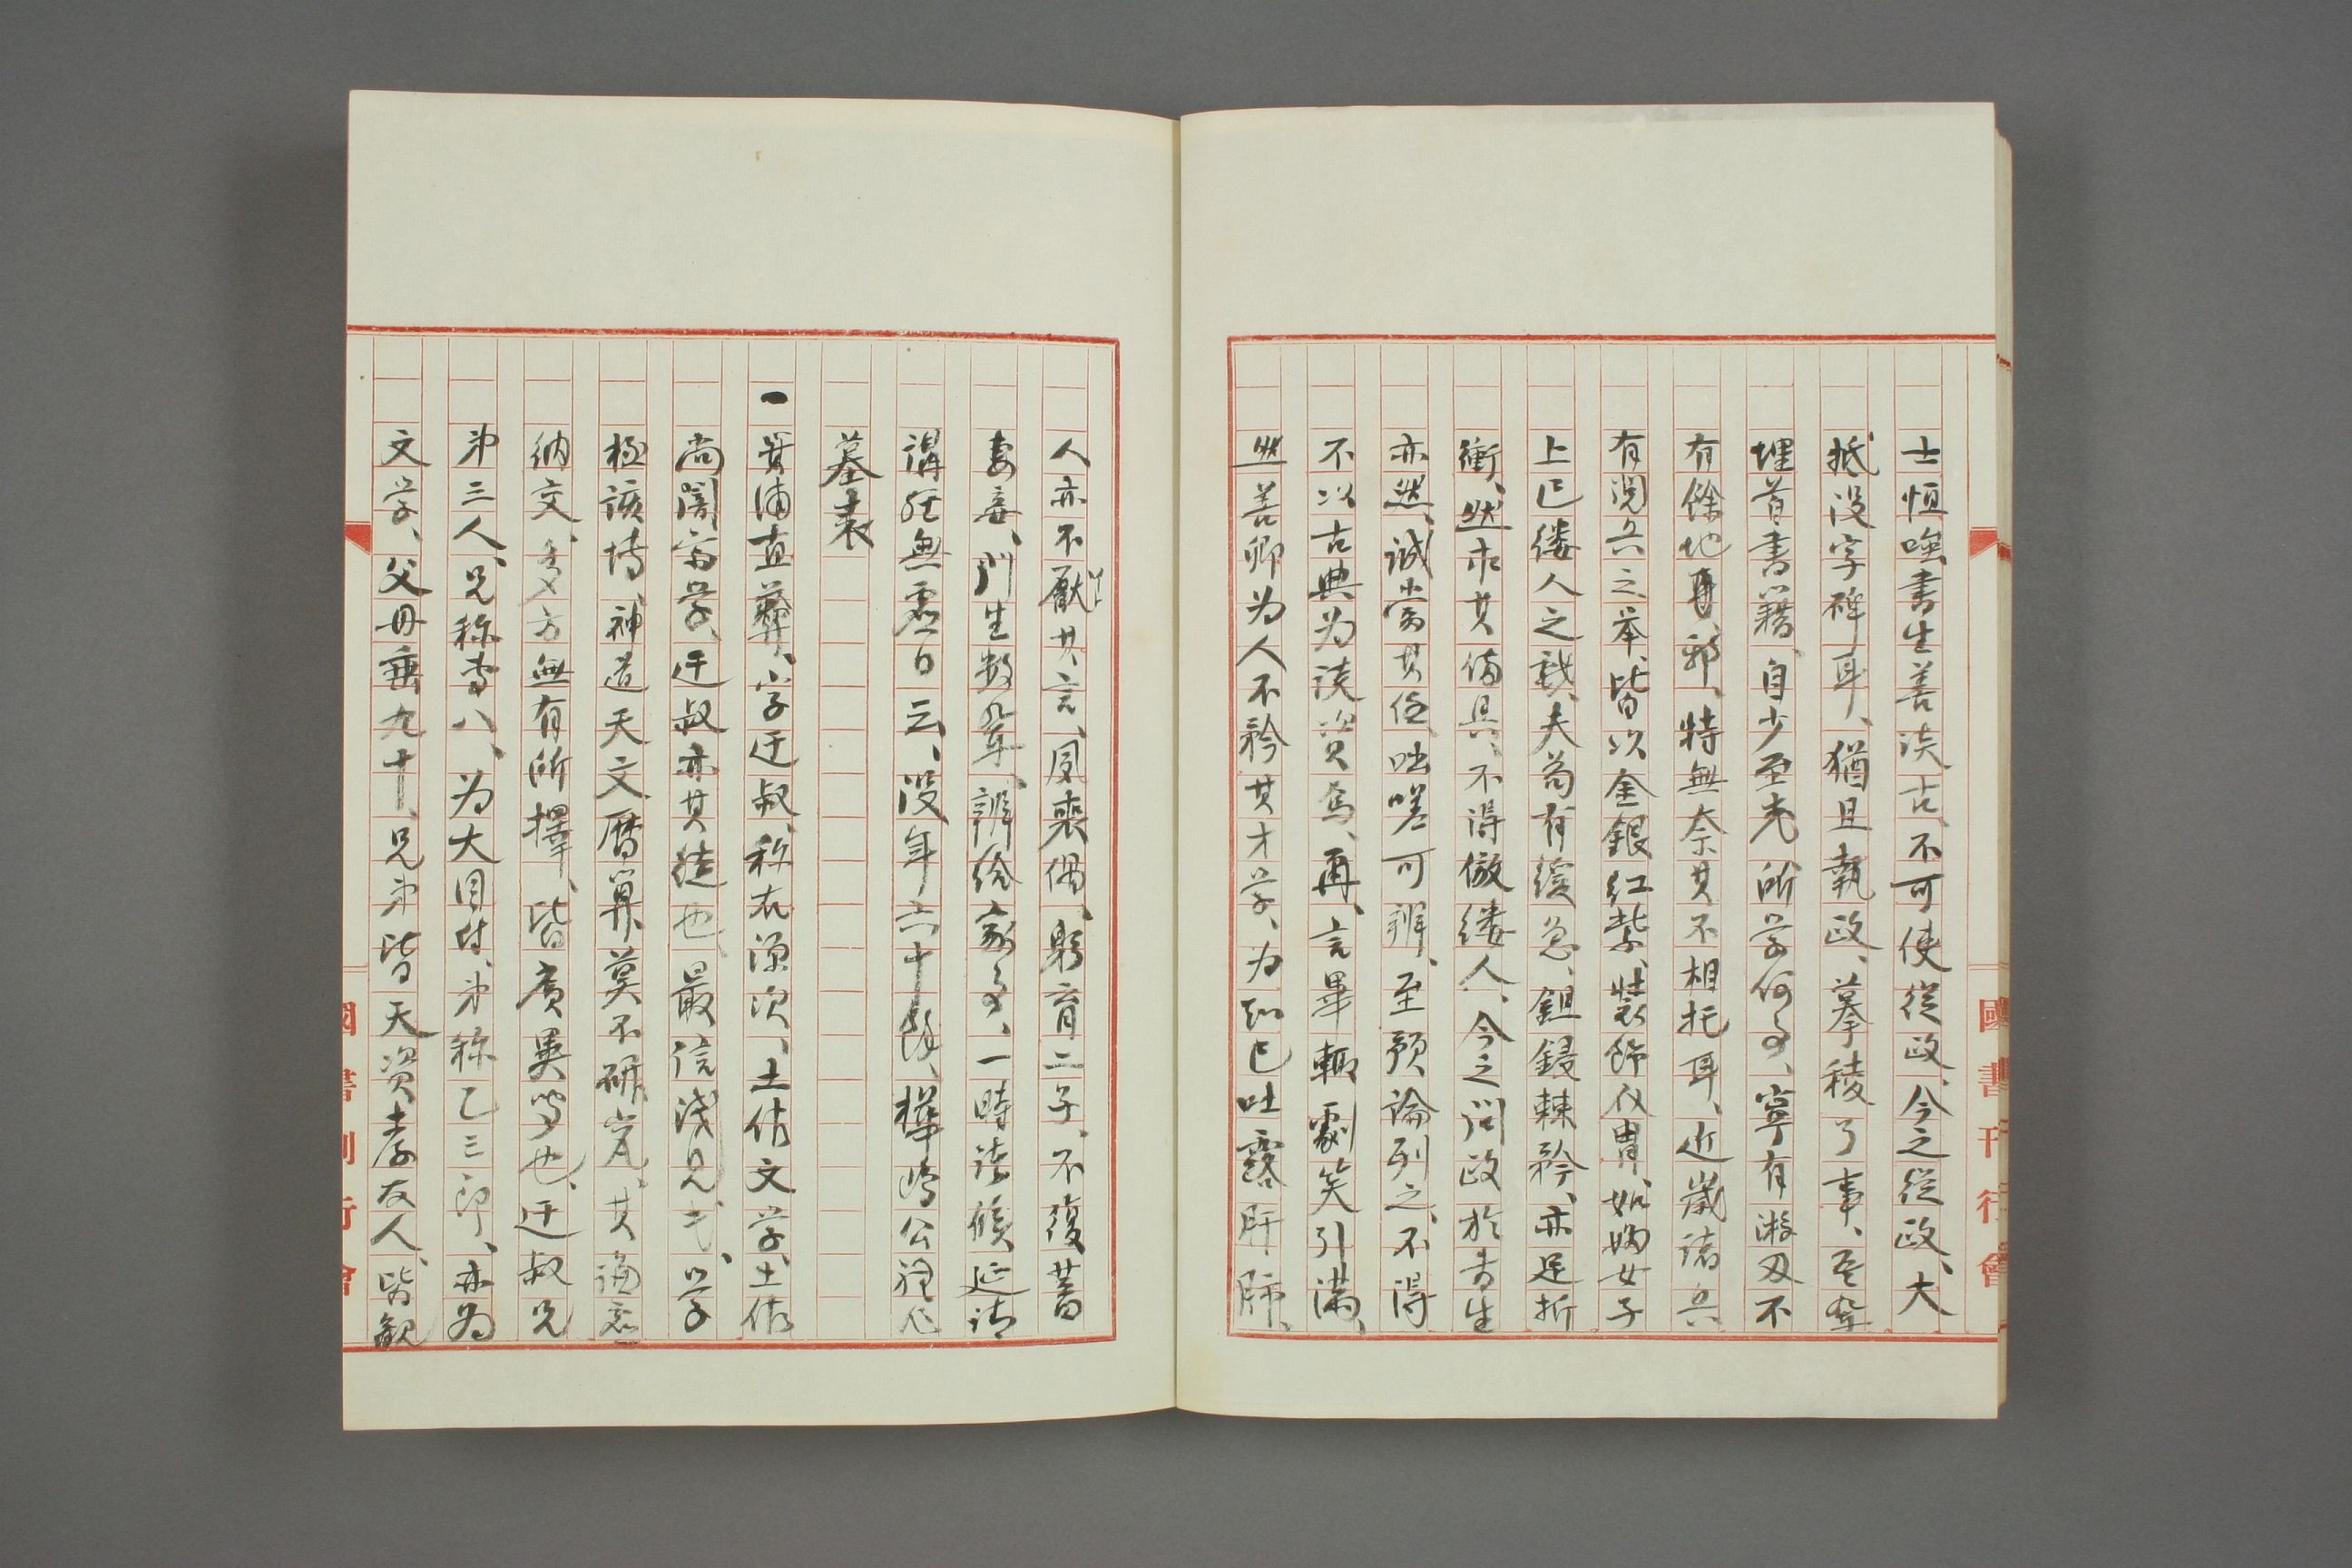 士恒喚書生善談古、不可使從政、今之從政、大
抵没字碑耳、猶且執政、摹稜了事、吾輩
埋首書籍、自少至老所学何事、寧有游刃不
有餘地耶、特無奈其不相托耳、近歳諸兵
有閲兵之挙、皆以金銀紅紫、装飾仗冑、如婦女子
上巳縷人之戯、夫苟有緩急、鉏耰棘矜、亦足折
衝、然求其備具、不得倣縷人、今之問政於書生
亦然、誠當其任、咄嗟可辨、至預論列之、不得
不以古典为談資焉、再言畢輒劇笑引満、
然善卿为人不矜其才学、为知己吐露肝肺、
人亦不厭其言、夙喪偶、躬育二子、不復蓄
妻妾、門生数輩、辨給家事、一時諸侯延請
講経無虚日云、没年六十餘、樺島公禮作
墓表
一 貫浦直彝、字迂叔、称右源次、土佐文学、土佐
尚闇斎学、迂叔亦其徒也、最信浅見氏、学
極該博、神道天文暦算、莫不研究、其謙虚
納交、多方無有所擇、皆廣異聞也、迂叔兄
弟三人、兄称専八、为大目付、弟称乙三郎、亦为
文学、父母垂九十、兄弟皆天資孝友人、皆観
國書刊行會
國書刊行會